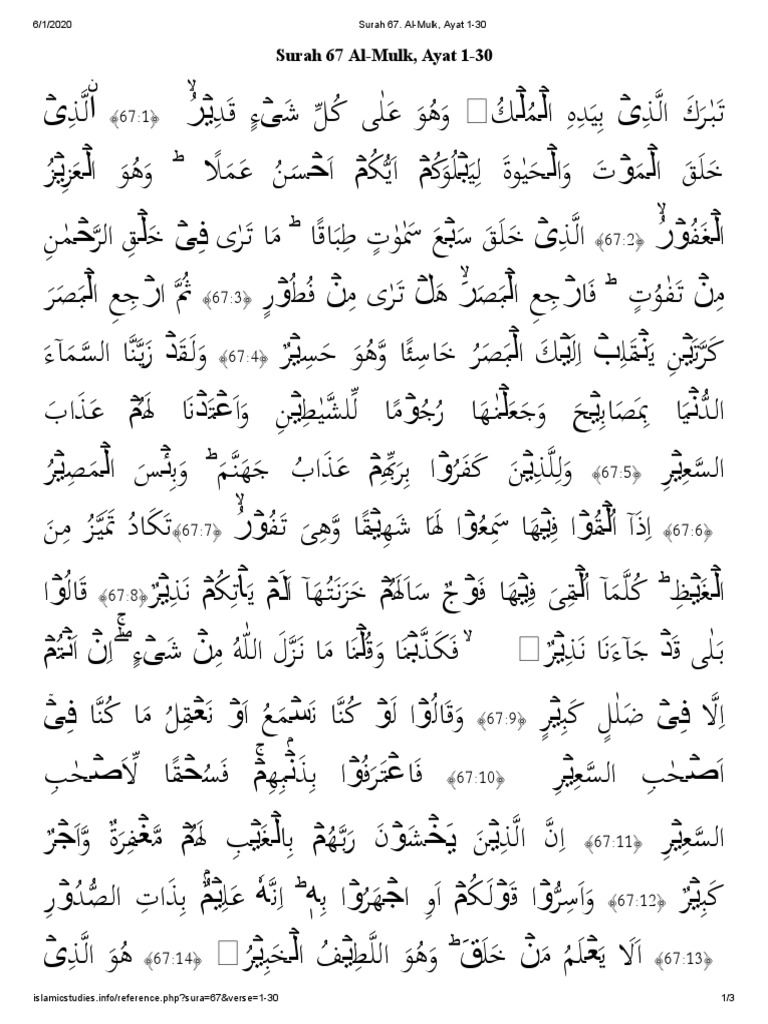 6/1/2020 Surah 67. Al-Mulk, Ayat 1-30
Surah 67 Al-Mulk, Ayat 1-30
تَبٰرَكَ الَّذِىۡ بِيَدِهِ الۡمُلۡكُ وَهُوَ عَلٰى كُلِّ شَىۡءٍ قَدِيۡرُۙ‏ ﴿67:1﴾ اۨلَّذِىۡ
خَلَقَ الۡمَوۡتَ وَالۡحَيٰوةَ لِيَبۡلُوَكُمۡ اَيُّكُمۡ اَحۡسَنُ عَمَلًا ؕ وَهُوَ الۡعَزِيۡزُ
الۡغَفُوۡرُۙ ﴿67:2﴾ الَّذِىۡ خَلَقَ سَبۡعَ سَمٰوٰتٍ طِبَاقًا ؕ مَا تَرٰى فِىۡ خَلۡقِ الرَّحۡمٰنِ
مِنۡ تَفٰوُتٍ ؕ فَارۡجِعِ الۡبَصَرَۙ هَلۡ تَرٰى مِنۡ فُطُوۡرٍ ﴿67:3﴾ ثُمَّ ارۡجِعِ الۡبَصَرَ
كَرَّتَيۡنِ يَنۡقَلِبۡ اِلَيۡكَ الۡبَصَرُ خَاسِئًا وَّهُوَ حَسِيۡرٌ ﴿67:4﴾ وَلَقَدۡ زَيَّنَّا السَّمَآءَ
الدُّنۡيَا بِمَصَابِيۡحَ وَجَعَلۡنٰهَا رُجُوۡمًا لِّلشَّيٰطِيۡنِ وَاَعۡتَدۡنَا لَهُمۡ عَذَابَ
السَّعِيۡرِ ﴿67:5﴾ وَلِلَّذِيۡنَ كَفَرُوۡا بِرَبِّهِمۡ عَذَابُ جَهَنَّمَ ؕ وَبِئۡسَ الۡمَصِيۡرُ
﴿67:6﴾ اِذَاۤ اُلۡقُوۡا فِيۡهَا سَمِعُوۡا لَهَا شَهِيۡقًا وَّهِىَ تَفُوۡرُۙ ﴿67:7﴾ تَكَادُ تَمَيَّزُ مِنَ
الۡغَيۡظِ ؕ كُلَّمَاۤ اُلۡقِىَ فِيۡهَا فَوۡجٌ سَاَلَهُمۡ خَزَنَتُهَاۤ اَلَمۡ يَاۡتِكُمۡ نَذِيۡرٌ ﴿67:8﴾ قَالُوۡا
بَلٰى قَدۡ جَآءَنَا نَذِيۡرٌ ۙ فَكَذَّبۡنَا وَقُلۡنَا مَا نَزَّلَ اللّٰهُ مِنۡ شَىۡءٍ ۖۚ اِنۡ اَنۡتُمۡ
اِلَّا فِىۡ ضَلٰلٍ كَبِيۡرٍ ﴿67:9﴾ وَقَالُوۡا لَوۡ كُنَّا نَسۡمَعُ اَوۡ نَعۡقِلُ مَا كُنَّا فِىۡۤ
اَصۡحٰبِ السَّعِيۡرِ ﴿67:10﴾ فَاعۡتَرَفُوۡا بِذَنۡۢبِهِمۡۚ فَسُحۡقًا لِّاَصۡحٰبِ
السَّعِيۡرِ ﴿67:11﴾ اِنَّ الَّذِيۡنَ يَخۡشَوۡنَ رَبَّهُمۡ بِالۡغَيۡبِ لَهُمۡ مَّغۡفِرَةٌ وَّاَجۡرٌ
كَبِيۡرٌ ﴿67:12﴾ وَاَسِرُّوۡا قَوۡلَكُمۡ اَوِ اجۡهَرُوۡا بِهٖؕ اِنَّهٗ عَلِيۡمٌۢ بِذَاتِ الصُّدُوۡرِ
﴿67:13﴾ اَلَا يَعۡلَمُ مَنۡ خَلَقَؕ وَهُوَ اللَّطِيۡفُ الۡخَبِيۡرُ ﴿67:14﴾ هُوَ الَّذِىۡ
islamicstudies.info/reference.php?sura=67&verse=1-30 1/3